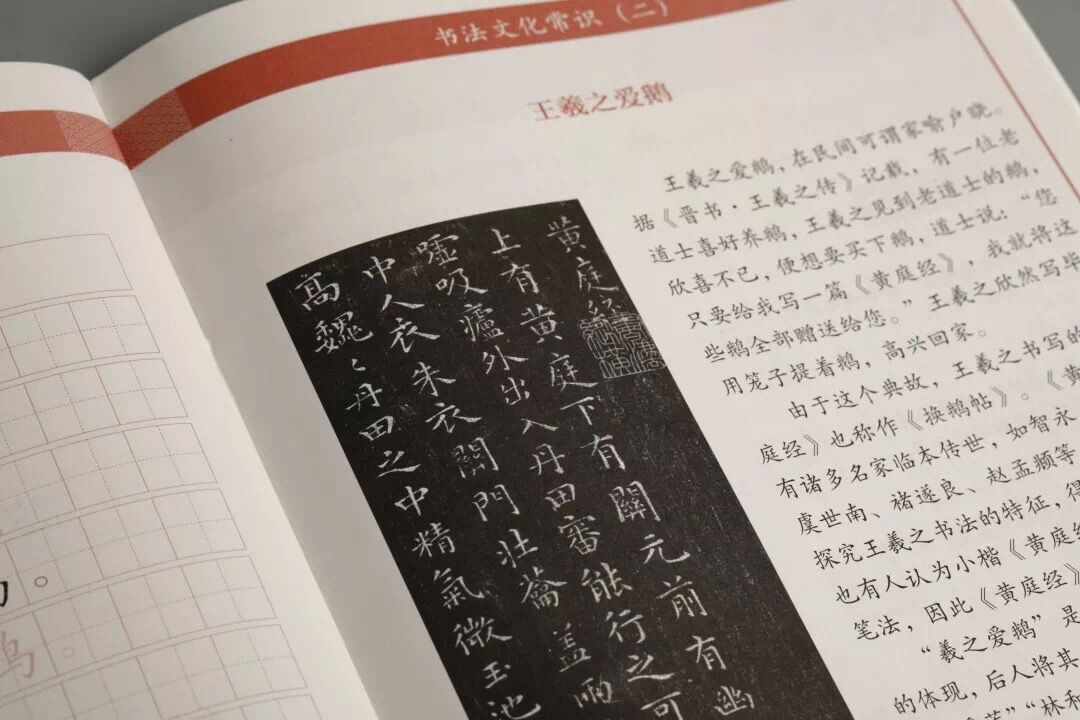 书法文化常识（二）
王羲之爱鹅
黄庭经
上有黄庭下有關元前有幽
嘘吸廬外出入丹田審能行之可
中人衣朱衣關門壯蘥蓋兩
高巍〻丹田之中精氣微玉池
王羲之爱鹅，在民间可谓家喻户晓。
据《晋书·王羲之传》记载，有一位老
道士喜好养鹅，王羲之见到老道士的鹅，
欣喜不已，便想要买下鹅，道士说：“您
只要给我写一篇《黄庭经》，我就将这
些鹅全部赠送给您。”王羲之欣然写毕
用笼子提着鹅，高兴回家。
由于这个典故，王羲之书写的
庭经》也称作《换鹅帖》。《黄
有诸多名家临本传世，如智永
虞世南、褚遂良、赵孟頫等
探究王羲之书法的特征，得
也有人认为小楷《黄庭经
笔法，因此《黄庭经》
“羲之爱鹅”是
的体现，后人将其
”“林和